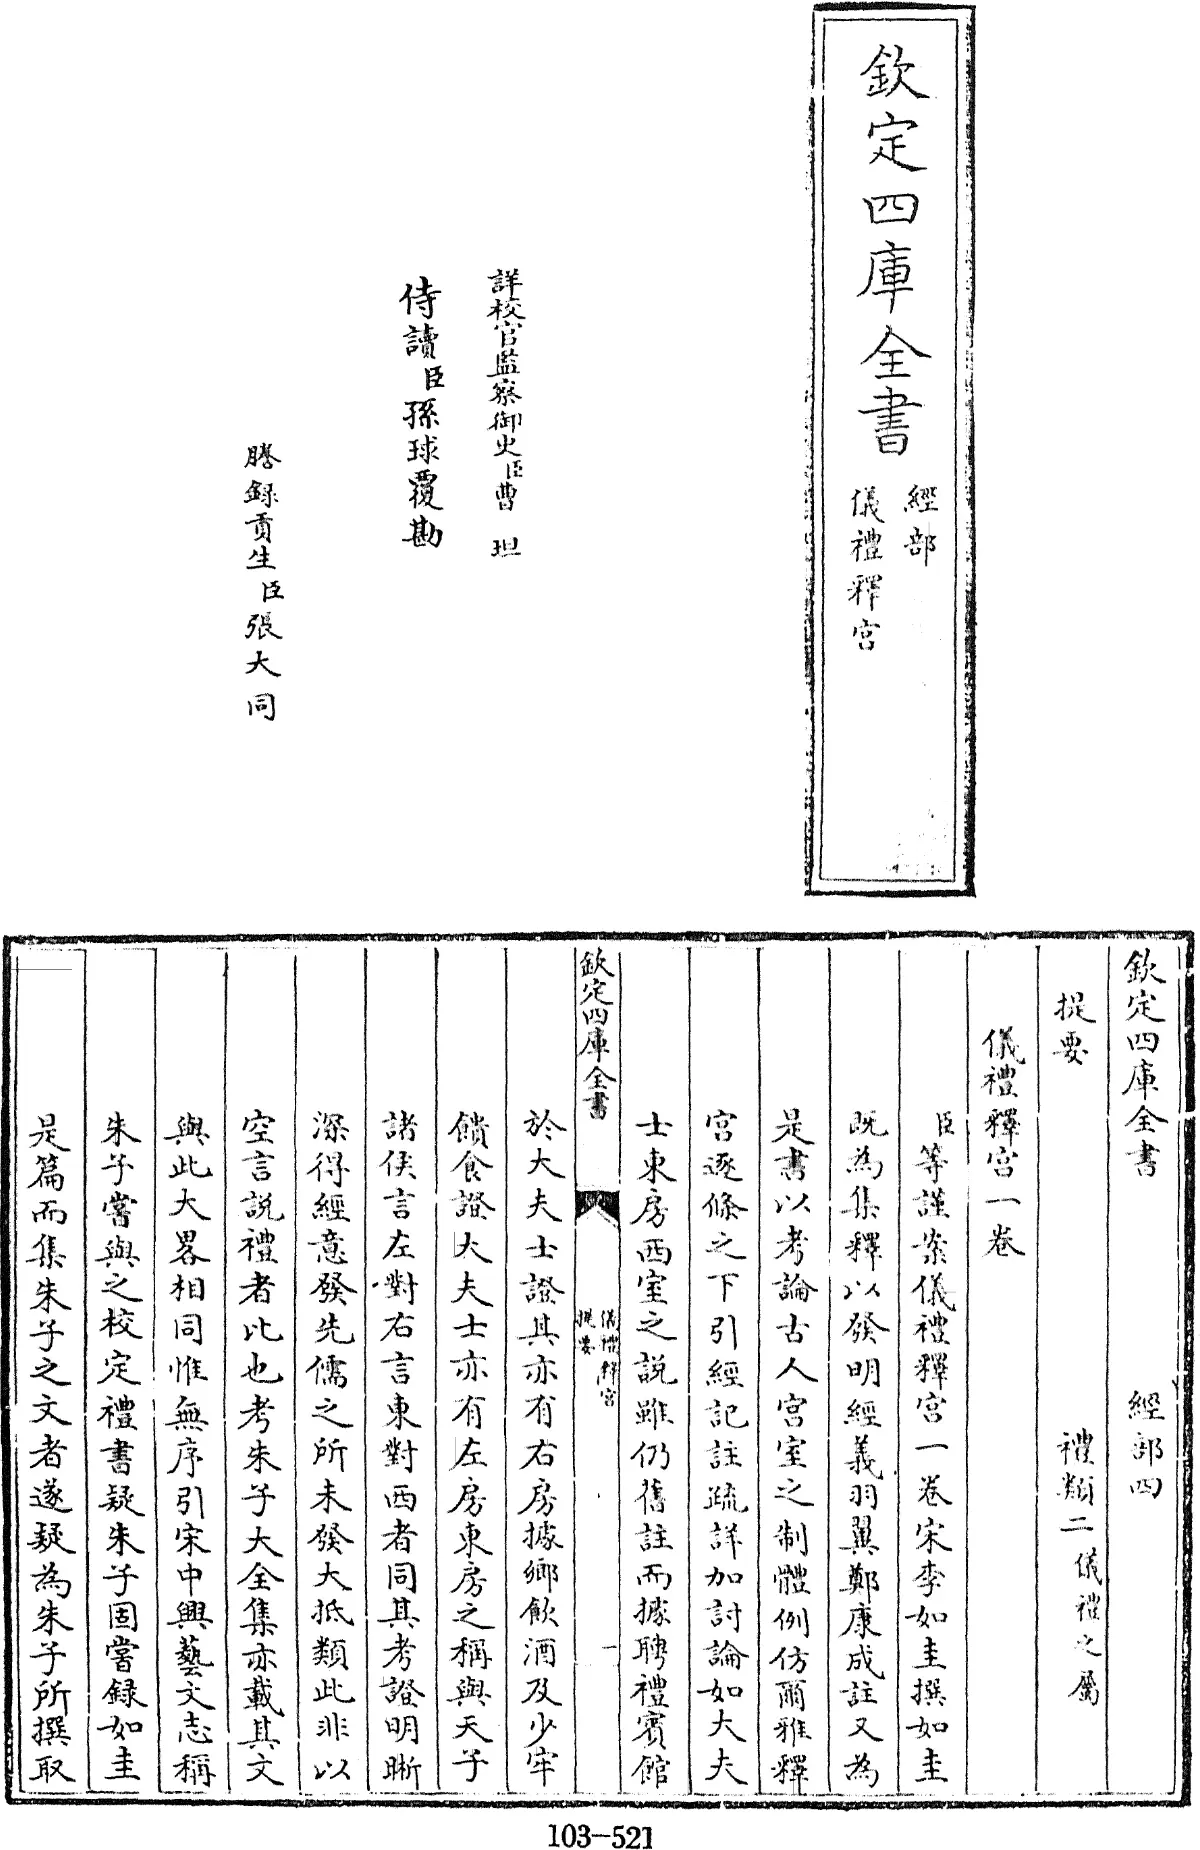 欽定四庫全書
經部
儀禮釋宮
詳校官監察御史臣曹坦
侍讀臣孫球覆勘
謄錄貢生臣張大同
欽定四庫全書 經部四
提要 禮類二儀禮之屬
儀禮釋宮一卷
臣等謹案儀禮釋宮一卷宋李如圭撰如圭
既為集釋以發明經義羽翼鄭康成註又為
是書以考論古人宮室之制體例仿爾雅釋
宮逐條之下引經記註疏詳加討論如大夫
士東房西室之說雖仍舊註而據聘禮賓館
欽定四庫全書 儀禮釋宮 提要 一
於大夫士證其亦有右房據鄉飲酒及少牢
饋食證大夫士亦有左房東房之稱與天子
諸侯言左對右言東對西者同其考證明晰
深得經意發先儒之所未發大抵類此非以
空言說禮者比也考朱子大全集亦載其文
與此大畧相同惟無序引宋中興藝文志稱
朱子嘗與之校定禮書疑朱子固嘗録如圭
是篇而集朱子之文者遂疑為朱子所撰取
103-521